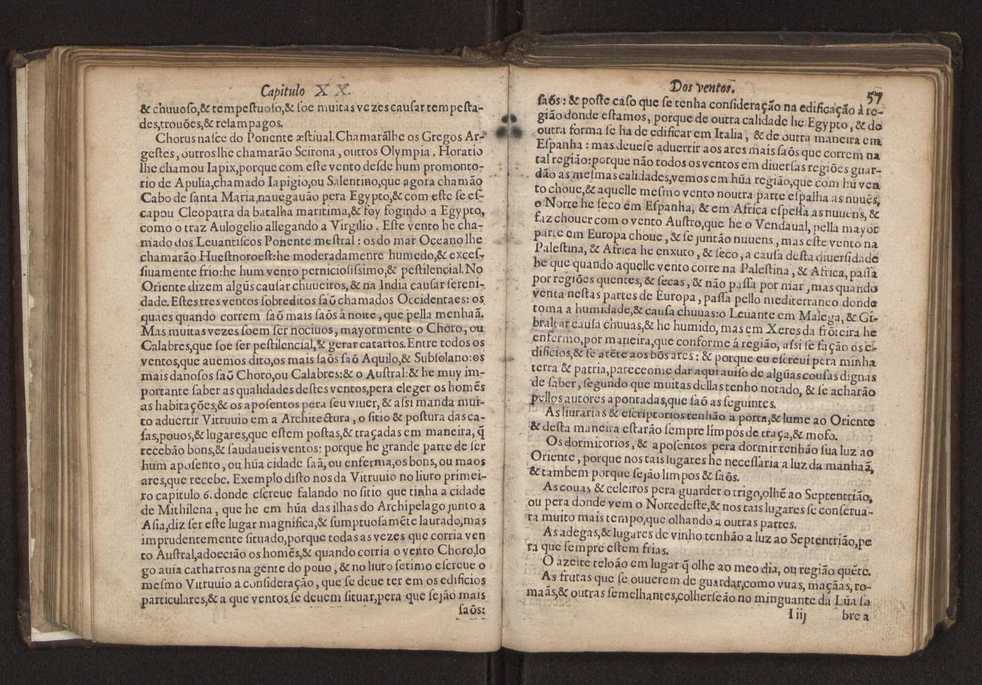 Capitulo XX.
& chuuoso,& tempestuoso,& soe muitas vezes causar tempesta-
des,trouões,& relampagos.
Chorus nasce do Ponente æstiual.Chamarãlhe os Gregos Ar-
gestes, outros lhe chamarão Scirona, outros Olympia. Horatio
lhe chamou Iapix,porque com este vento desde hum promonto-
rio de Apulia,chamado Iapigio,ou Salentino,que agora chamão
Cabo de santa Maria,nauegauão pera Egypto,& com este se es-
capou Cleopatra da batalha maritima,& foy fogindo a Egypto,
como o traz Aulogelio allegando a Virgilio. Este vento he cha-
mado dos Leuantiscos Ponente mestral: os do mar Oceano lhe
chamarão Huestnoroest:he moderadamente humedo,& exces-
siuamente frio:he hum vento perniciosissimo,& pestilencial.No
Oriente dizem algũs causar chuueiros,& na India causar sereni-
dade. Estes tres ventos sobreditos saõ chamados Occidentaes: os
quaes quando correm saõ mais saõs à noite, que pella menhaã.
Mas muitas vezes soem ser nociuos, mayormente o Choro, ou
Calabres,que soe ser pestilencial,& gerar catarros.Entre todos os
ventos,que auemos dito,os mais saõs saõ Aquilo,& Subsolano:os
mais danosos saõ Choro,ou Calabres:& o Austral:& he muy im-
portante saber as qualidades destes ventos,pera eleger os homẽs
as habitações,& os aposentos pera seu viuer, & assi manda mui-
to aduertir Vitruuio em a Architectura, o sitio & postura das ca-
sas,pouos,& lugares,que estem postas,& traçadas em maneira, q̃
recebão bons,& saudaueis ventos: porque he grande parte de ser
hum aposento, ou hũa cidade saã, ou enferma,os bons, ou maos
ares,que recebe. Exemplo disto nos da Vitruuio no liuro primei-
ro capitulo 6. donde escreue falando no sitio que tinha a cidade
de Mithilena, que he em hũa das ilhas do Archipelago junto a
Asia,diz ser este lugar magnifica,& sumptuosamẽte laurado,mas
imprudentemente situado,porque todas as vezes que corria ven
to Austral,adoecião os homẽs,& quando corria o vento Choro,lo
go auia cathatros na gente do pouo, & no liuro setimo escreue o
mesmo Vitruuio a consideração, que se deue ter em os edificios
particulares,& a que ventos se deuem situar,pera que sejão mais
saõs:
Dos ventos. 57
saõs: & posto caso que se tenha consideração na edificação à re-
gião donde estamos, porque de outra calidade he Egypto, & de
outra forma se ha de edificar em Italia, & de outra maneira em
Espanha: mas deuese aduertir aos ares mais saõs que correm na
tal região:porque não todos os ventos em diuersas regiões guar-
dão as mesmas calidades,vemos em hũa região,que com hũ ven
to choue,& aquelle mesmo vento noutra parte espalha as nuuẽs,
o Norte he seco em Espanha, & em Africa espessa as nuuẽs, &
faz chouer com o vento Austro,que he o Vendaual, pella mayor
parte em Europa choue, & se juntão nuuens, mas este vento na
Palestina, & Africa he enxuto, & seco, a causa desta diuersidade
he que quando aquelle vento corre na Palestina, & Africa, passa
por regiões quentes, & secas, & não passa por mar, mas quando
venta nestas partes de Europa, passa pello mediterraneo donde
toma a humidade,& causa chuuas:o Leuante em Malega, & Gi-
braltar causa chuuas,& he humido, mas em Xeres da frõteira he
enfermo,por maneira,que conforme à região, assi se fação os e-
dificios,& se atẽte aos bõs ares: & porque eu escreui pera minha
terra & patria,pareceome dar aqui auiso de algũas cousas dignas
de saber, segundo que muitas dellas tenho notado, & se acharão
pellos autores apontadas,que saõ as seguintes.
As liurarias & escriptorios tenhão a porta,& lume ao Oriente
& desta maneira estarão sempre limpos de traça,& mofo.
Os dormitorios, & aposentos pera dormir tenhão sua luz ao
Oriente, porque nos tais lugares he necessaria a luz da manhaã,
& tambem porque sejão limpos & saõs.
As couas & celeiros pera guarder o trigo,olhẽ ao Septentrião,
ou pera donde vem o Nordedeste,& nos tais lugares se conserua-
ra muito mais tempo,que olhando a outras partes.
As adegas,& lugares de vinho tenhão a luz ao Septentrião,pe
ra que sempre estem frias.
O azeite teloão em lugar q̃ olhe ao meo dia, ou região quẽte.
As frutas que se ouuerem de guardar,como vuas, maçãas, ro-
maãs,& outras semelhantes,colherseão no minguante da Lũa sa
I iij bre a